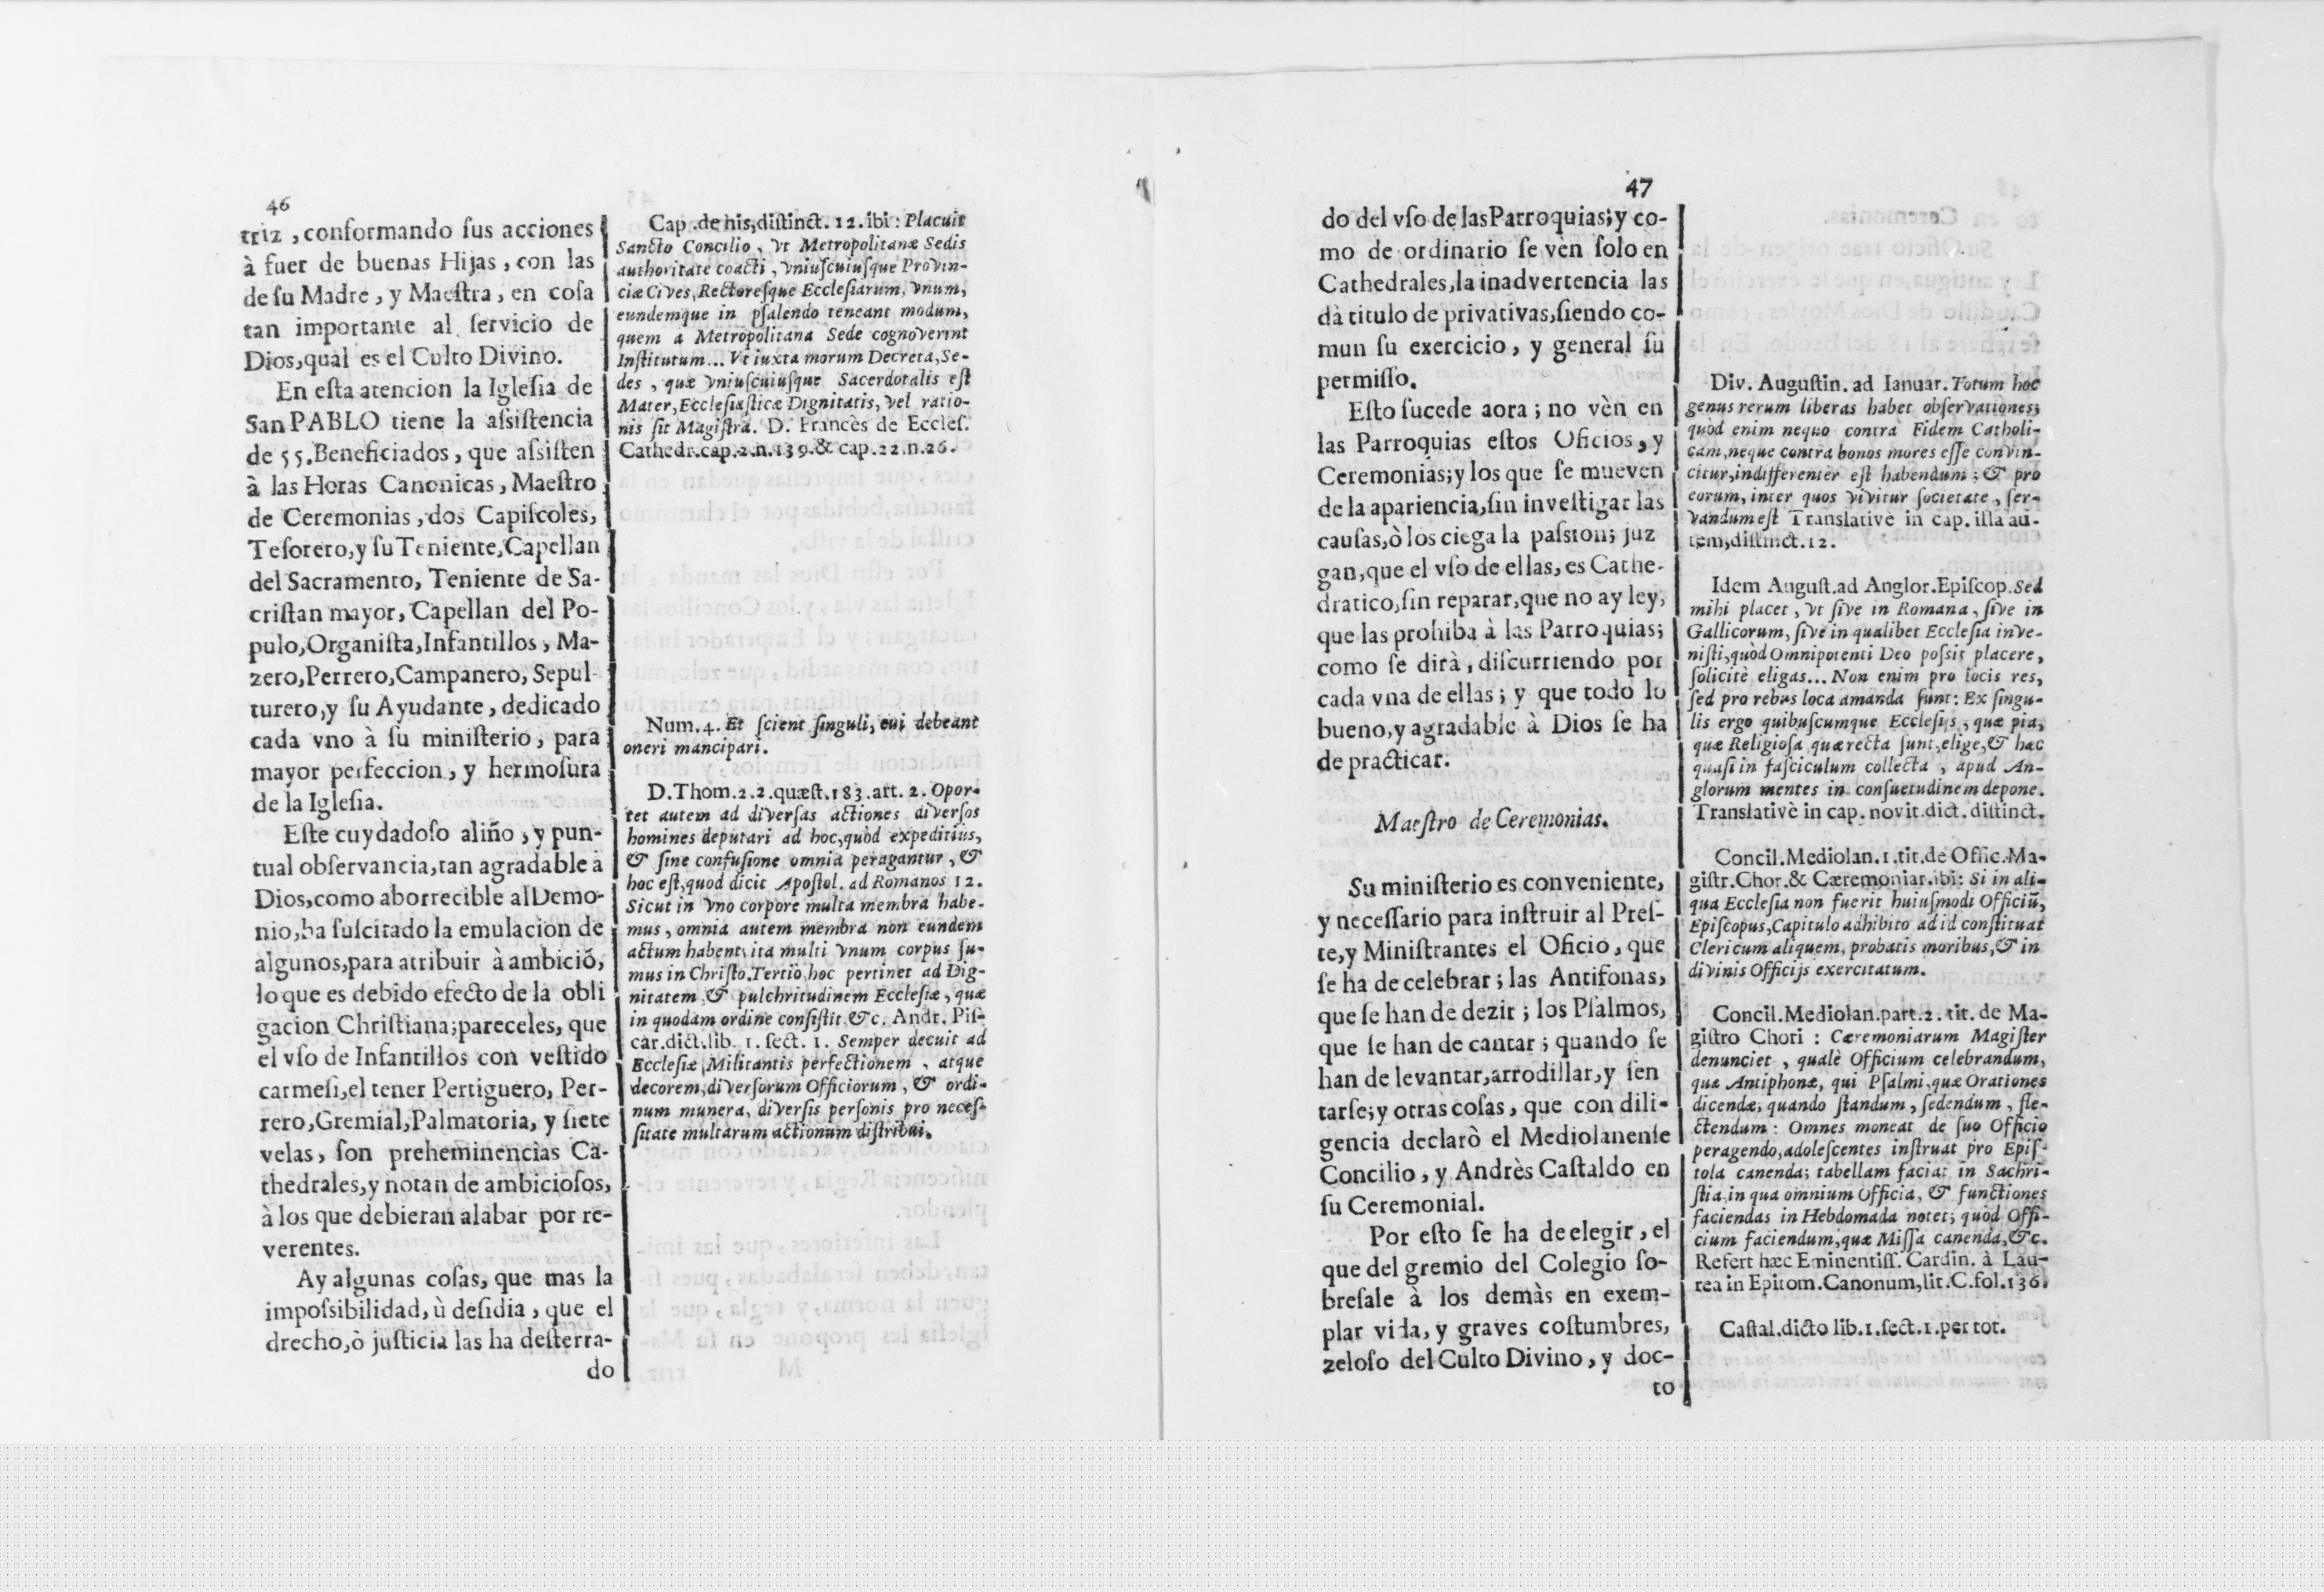 46
triz, conformando ſus acciones
à fuer de buenas Hijas, con las
de ſu Madre, y Maeſtra, en coſa
tan importante al ſervicio de
Dios, qual es el Culto Divino.
En eſta atencion la Igleſia de
San PABLO tiene la aſsiſtencia
de 55. Beneficiados, que aſsiſten
à las Horas Canonicas, Maeſtro
de Ceremonias, dos Capiſcoles,
Teſorero, y ſu Teniente, Capellan
del Sacramento, Teniente de Sa-
criſtan mayor, Capellan del Po-
pulo, Organiſta, Infantillos, Ma-
zero, Perrero, Campanero, Sepul-
turero, y ſu Ayudante, dedicado
cada vno à ſu miniſterio, para
mayor perfeccion, y hermoſura
de la Igleſia.
Eſte cuydadoſo aliño, y pun-
tual obſervancia, tan agradable à
Dios, como aborrecible al Demo-
nio, ha ſuſcitado la emulacion de
algunos, para atribuir à ambiciõ,
lo que es debido efecto de la obli
gacion Chriſtiana; pareceles, que
el vſo de Infantillos con veſtido
carmeſi, el tener Pertiguero, Per-
rero, Gremial, Palmatoria, y ſiete
velas, ſon preheminencias Ca-
thedrales, y notan de ambicioſos,
à los que debieran alabar por re-
verentes.
Ay algunas coſas, que mas la
impoſsibilidad, ù deſidia, que el
drecho, ò juſticia las ha deſterra-
do
Cap. de his, diſtinct. 12. ibi: Placuit
Sancto Concilio, vt Metropolitanæ Sedis
authoritate coacti, vniuſcuiuſque Provin-
ciæ Cives, Rectoreſque Eccleſiarum, vnum,
eundemque in pſalendo teneant modum,
quem a Metropolitana Sede cognoverint
Inſtitutum... Vt iuxta morum Decreta, Se-
des, quæ vniuſcuiuſque Sacerdotalis eſt
Mater, Eccleſiaſticæ Dignitatis, vel ratio-
nis ſit Magiſtra. D. Francès de Eccleſ.
Cathedr. cap. 2. n. 139. & cap. 22. n. 26.
Num. 4. Et ſcient ſinguli, cui debeant
oneri mancipari.
D. Thom. 2. 2. quæſt. 183. art. 2. Opor-
tet autem ad diverſas actiones diverſos
homines deputari ad hoc, quòd expeditiùs,
& ſine confuſione omnia peragantur, &
hoc eſt, quod dicit Apoſtol. ad Romanos 12.
Sicut in vno corpore multa membra habe-
mus, omnia autem membra non eundem
actum habent; ita multi vnum corpus ſu-
mus in Chriſto. Tertiò, hoc pertinet ad Dig-
nitatem, & pulchritudinem Eccleſiæ, quæ
in quodam ordine conſiſtit, &c. Andr. Piſ-
car. dict. lib. 1. ſect. 1. Semper decuit ad
Eccleſiæ Militantis perfectionem, atque
decorem, diverſorum Officiorum, & ordi-
num munera, diverſis perſonis pro neceſ-
ſitate multarum actionum diſtribui.
47
do del vſo de las Parroquias; y co-
mo de ordinario ſe vèn ſolo en
Cathedrales, la inadvertencia las
dà titulo de privativas, ſiendo co-
mun ſu exercicio, y general ſu
permiſſo.
Eſto ſucede aora; no vèn en
las Parroquias eſtos Oficios, y
Ceremonias; y los que ſe mueven
de la apariencia, ſin inveſtigar las
cauſas, ò los ciega la paſsion; juz
gan, que el vſo de ellas, es Cathe-
dratico, ſin reparar, que no ay ley,
que las prohiba à las Parroquias;
como ſe dirà, diſcurriendo por
cada vna de ellas; y que todo lo
bueno, y agradable à Dios ſe ha
de practicar.
Maeſtro de Ceremonias.
Su miniſterio es conveniente,
y neceſſario para inſtruir al Preſ-
te, y Miniſtrantes el Oficio, que
ſe ha de celebrar; las Antifonas,
que ſe han de dezir; los Pſalmos,
que ſe han de cantar; quando ſe
han de levantar, arrodillar, y ſen
tarſe; y otras coſas, que con dili-
gencia declarò el Mediolanenſe
Concilio, y Andrès Caſtaldo en
ſu Ceremonial.
Por eſto ſe ha de elegir, el
que del gremio del Colegio ſo-
breſale à los demàs en exem-
plar vida, y graves coſtumbres,
zeloſo del Culto Divino, y doc-
to
Div. Auguſtin. ad Ianuar. Totum hoc
genus rerum liberas habet obſervationes;
quòd enim neque contra Fidem Catholi-
cam, neque contra bonos mores eſſe convin-
citur, indifferenter eſt habendum; & pro
eorum, inter quos vivitur ſocietate, ſer-
vandum eſt Translativè in cap. illa au-
tem, diſtinct. 12.
Idem Auguſt. ad Anglor. Epiſcop. Sed
mihi placet, vt ſive in Romana, ſive in
Gallicorum, ſive in qualibet Eccleſia inve-
niſti, quòd Omnipotenti Deo poſsit placere,
ſolicitè eligas... Non enim pro locis res,
ſed pro rebus loca amanda ſunt: Ex ſingu-
lis ergo quibuſcumque Eccleſijs, quæ pia,
quæ Religioſa, quæ recta ſunt, elige, & hæc
quaſi in faſciculum collecta, apud An-
glorum mentes in conſuetudinem depone.
Translativè in cap. novit. dict. diſtinct.
Concil. Mediolan. 1. tit. de Offic. Ma-
giſtr. Chor. & Cæremoniar. ibi: Si in ali-
qua Eccleſia non fuerit huiuſmodi Officiũ,
Epiſcopus, Capitulo adhibito ad id conſtituat
Clericum aliquem, probatis moribus, & in
divinis Officijs exercitatum.
Concil. Mediolan. part. 2. tit. de Ma-
giſtro Chori: Cæremoniarum Magiſter
denunciet, qualè Officium celebrandum,
quæ Antiphonæ, qui Pſalmi, quæ Orationes
dicendæ; quando ſtandum, ſedendum, fle-
ctendum: Omnes moneat de ſuo Officio
peragendo, adoleſcentes inſtruat pro Epiſ-
tola canenda; tabellam faciat in Sachri-
ſtia, in qua omnium Officia, & functiones
faciendas in Hebdomada notet; quòd Offi-
cium faciendum, quæ Miſſa canenda, &c.
Refert hæc Eminentiſſ. Cardin. à Lau-
rea in Epitom. Canonum, lit. C. fol. 136.
Caſtal. dicto lib. 1. ſect. 1. per tot.